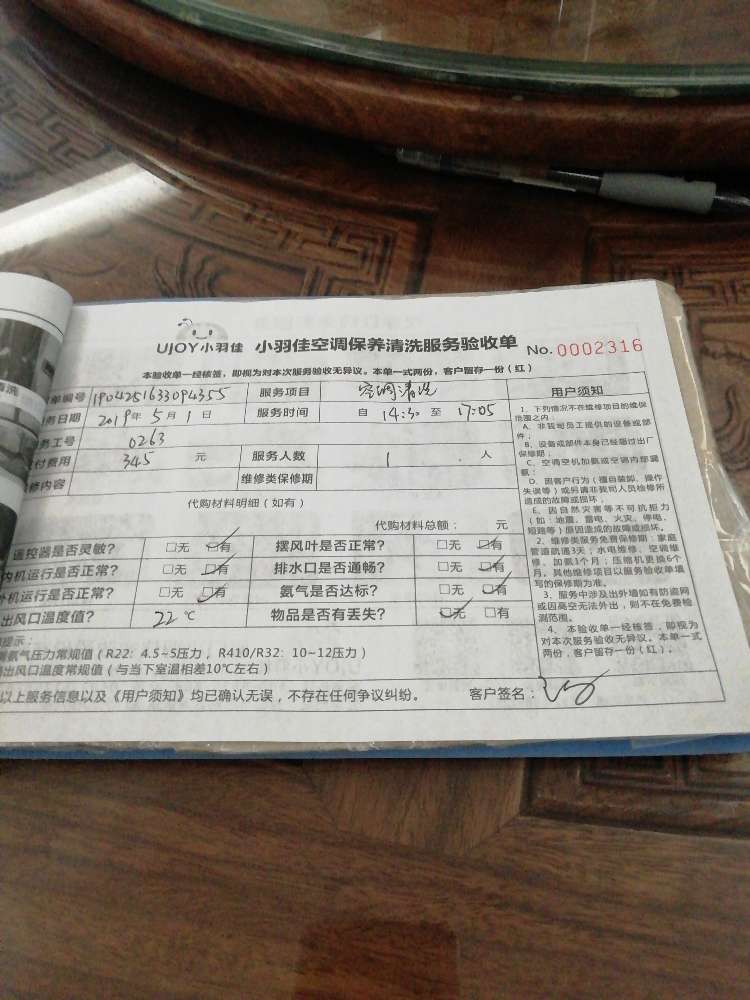 清洗
UJOY小羽佳 小羽佳空调保养清洗服务验收单 No. 0002316
本验收单一经核签，即视为对本次服务验收无异议。本单一式两份，客户留存一份（红）
单编号 1904251633094355 服务项目 空调清洗
务日期 2019年5月1日 服务时间 自 14:30 至 17:05
务工号 0263
付费用 345 元 服务人数 1 人
修内容 维修类保修期
代购材料明细（如有）
代购材料总额： 元
遥控器是否灵敏？ □无 □有 摆风叶是否正常？ □无 □有
内机运行是否正常？ □无 □有 排水口是否通畅？ □无 □有
外机运行是否正常？ □无 □有 氨气是否达标？ □无 □有
出风口温度值？ 22 ℃ 物品是否有丢失？ □无 □有
提示：
氨气压力常规值（R22：4.5~5压力，R410/R32：10~12压力）
出风口温度常规值（与当下室温相差10℃左右）
以上服务信息以及《用户须知》均已确认无误，不存在任何争议纠纷。 客户签名：
用户须知
1、下列情况不在维修项目的维保
范围之内：
A、非我司员工提供的设备或部
件；
B、设备或部件本身已经超过出厂
保修期；
C、空调空机加氨或空调内部漏
氨；
D、因客户行为（擅自装卸、操作
失误等）或另请非我司人员检修所
造成的故障或损坏；
E、因自然灾害等不可抗力
（如：地震、雷电、火灾、停电、
短路等）原因造成的故障或损坏。
2、维修类服务免费保修期：家庭
管道疏通3天；水电维修、空调维
修、加氨1个月；压缩机更换6个
月。其他维修项目以服务验收单填
写的保修期为准。
3、服务中涉及出外墙如有防盗网
或因高空无法外出，则不在免费检
测范围。
4、本验收单一经核签，即视为
对本次服务验收无异议。本单一式
两份，客户留存一份（红）。